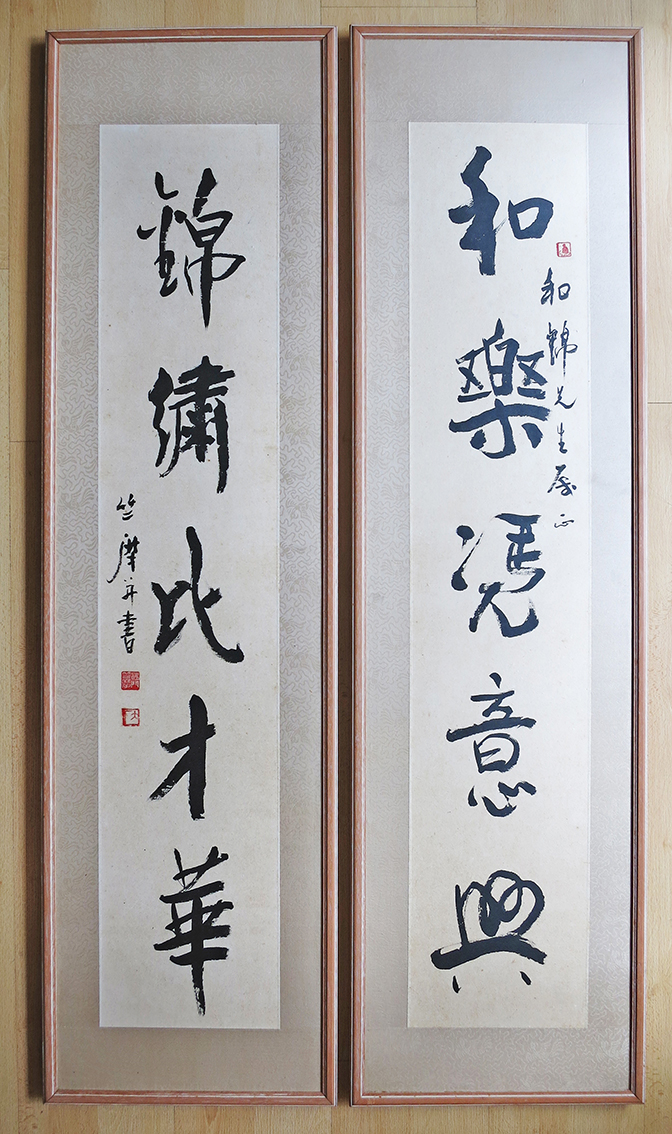 和樂凴意興
和錦先生屬正
錦繡比才華
竺摩并書